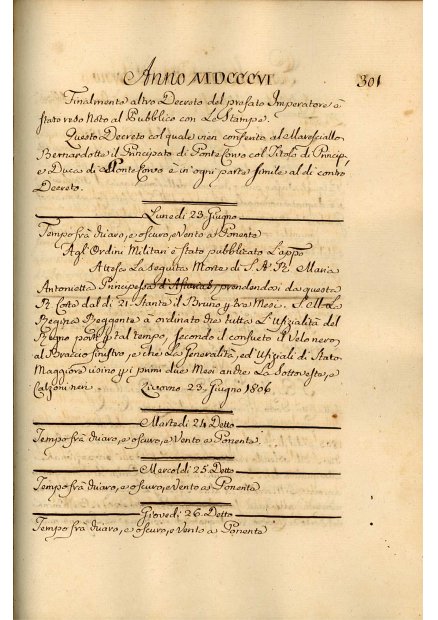 Anno MDCCCVI 301
Finalmente altro Decreto del prefato Imperatore è
stato reso Noto al Pubblico con Le Stampe.
Questo Decreto col quale vien conferita al Maresciallo
Bernardotte il Principato di Ponte Corvo col Titolo di Princip,
e Duca di Ponte Corvo è in ogni parte simile al di contro
Decreto.
Lunedi 23 Giugno
Tempo frà chiaro, e oscuro, e Vento a Ponente
Agl'Ordini Militari è stato pubblicato L'app.o
Attesa La seguita Morte di S. A. R. Maria
Antonietta Principessa d'Asturias, prenderà da questa
R. Corte dal dì 21. Stante il Bruno p. tre Mesi. S. M. La
Regina Reggente à ordinato che tutta L'Ufizialità del
Regno porti p. tal tempo, secondo il consueto il Velo nero,
al Braccio sinistro, e che La Generalità, ed Ufiziali di Stato
Maggiore usino p. i primi due Mesi anche La Sottoveste, e
Calzoni neri. Livorno 23. Giugno 1806
Martedi 24 Detto
Tempo frà chiaro, e oscuro, e Vento a Ponente
Mercoldi 25 Detto
Tempo frà chiaro, e oscuro, e Vento a Ponente
Giovedi 26 Detto
Tempo frà chiaro, e oscuro, e Vento a Ponente